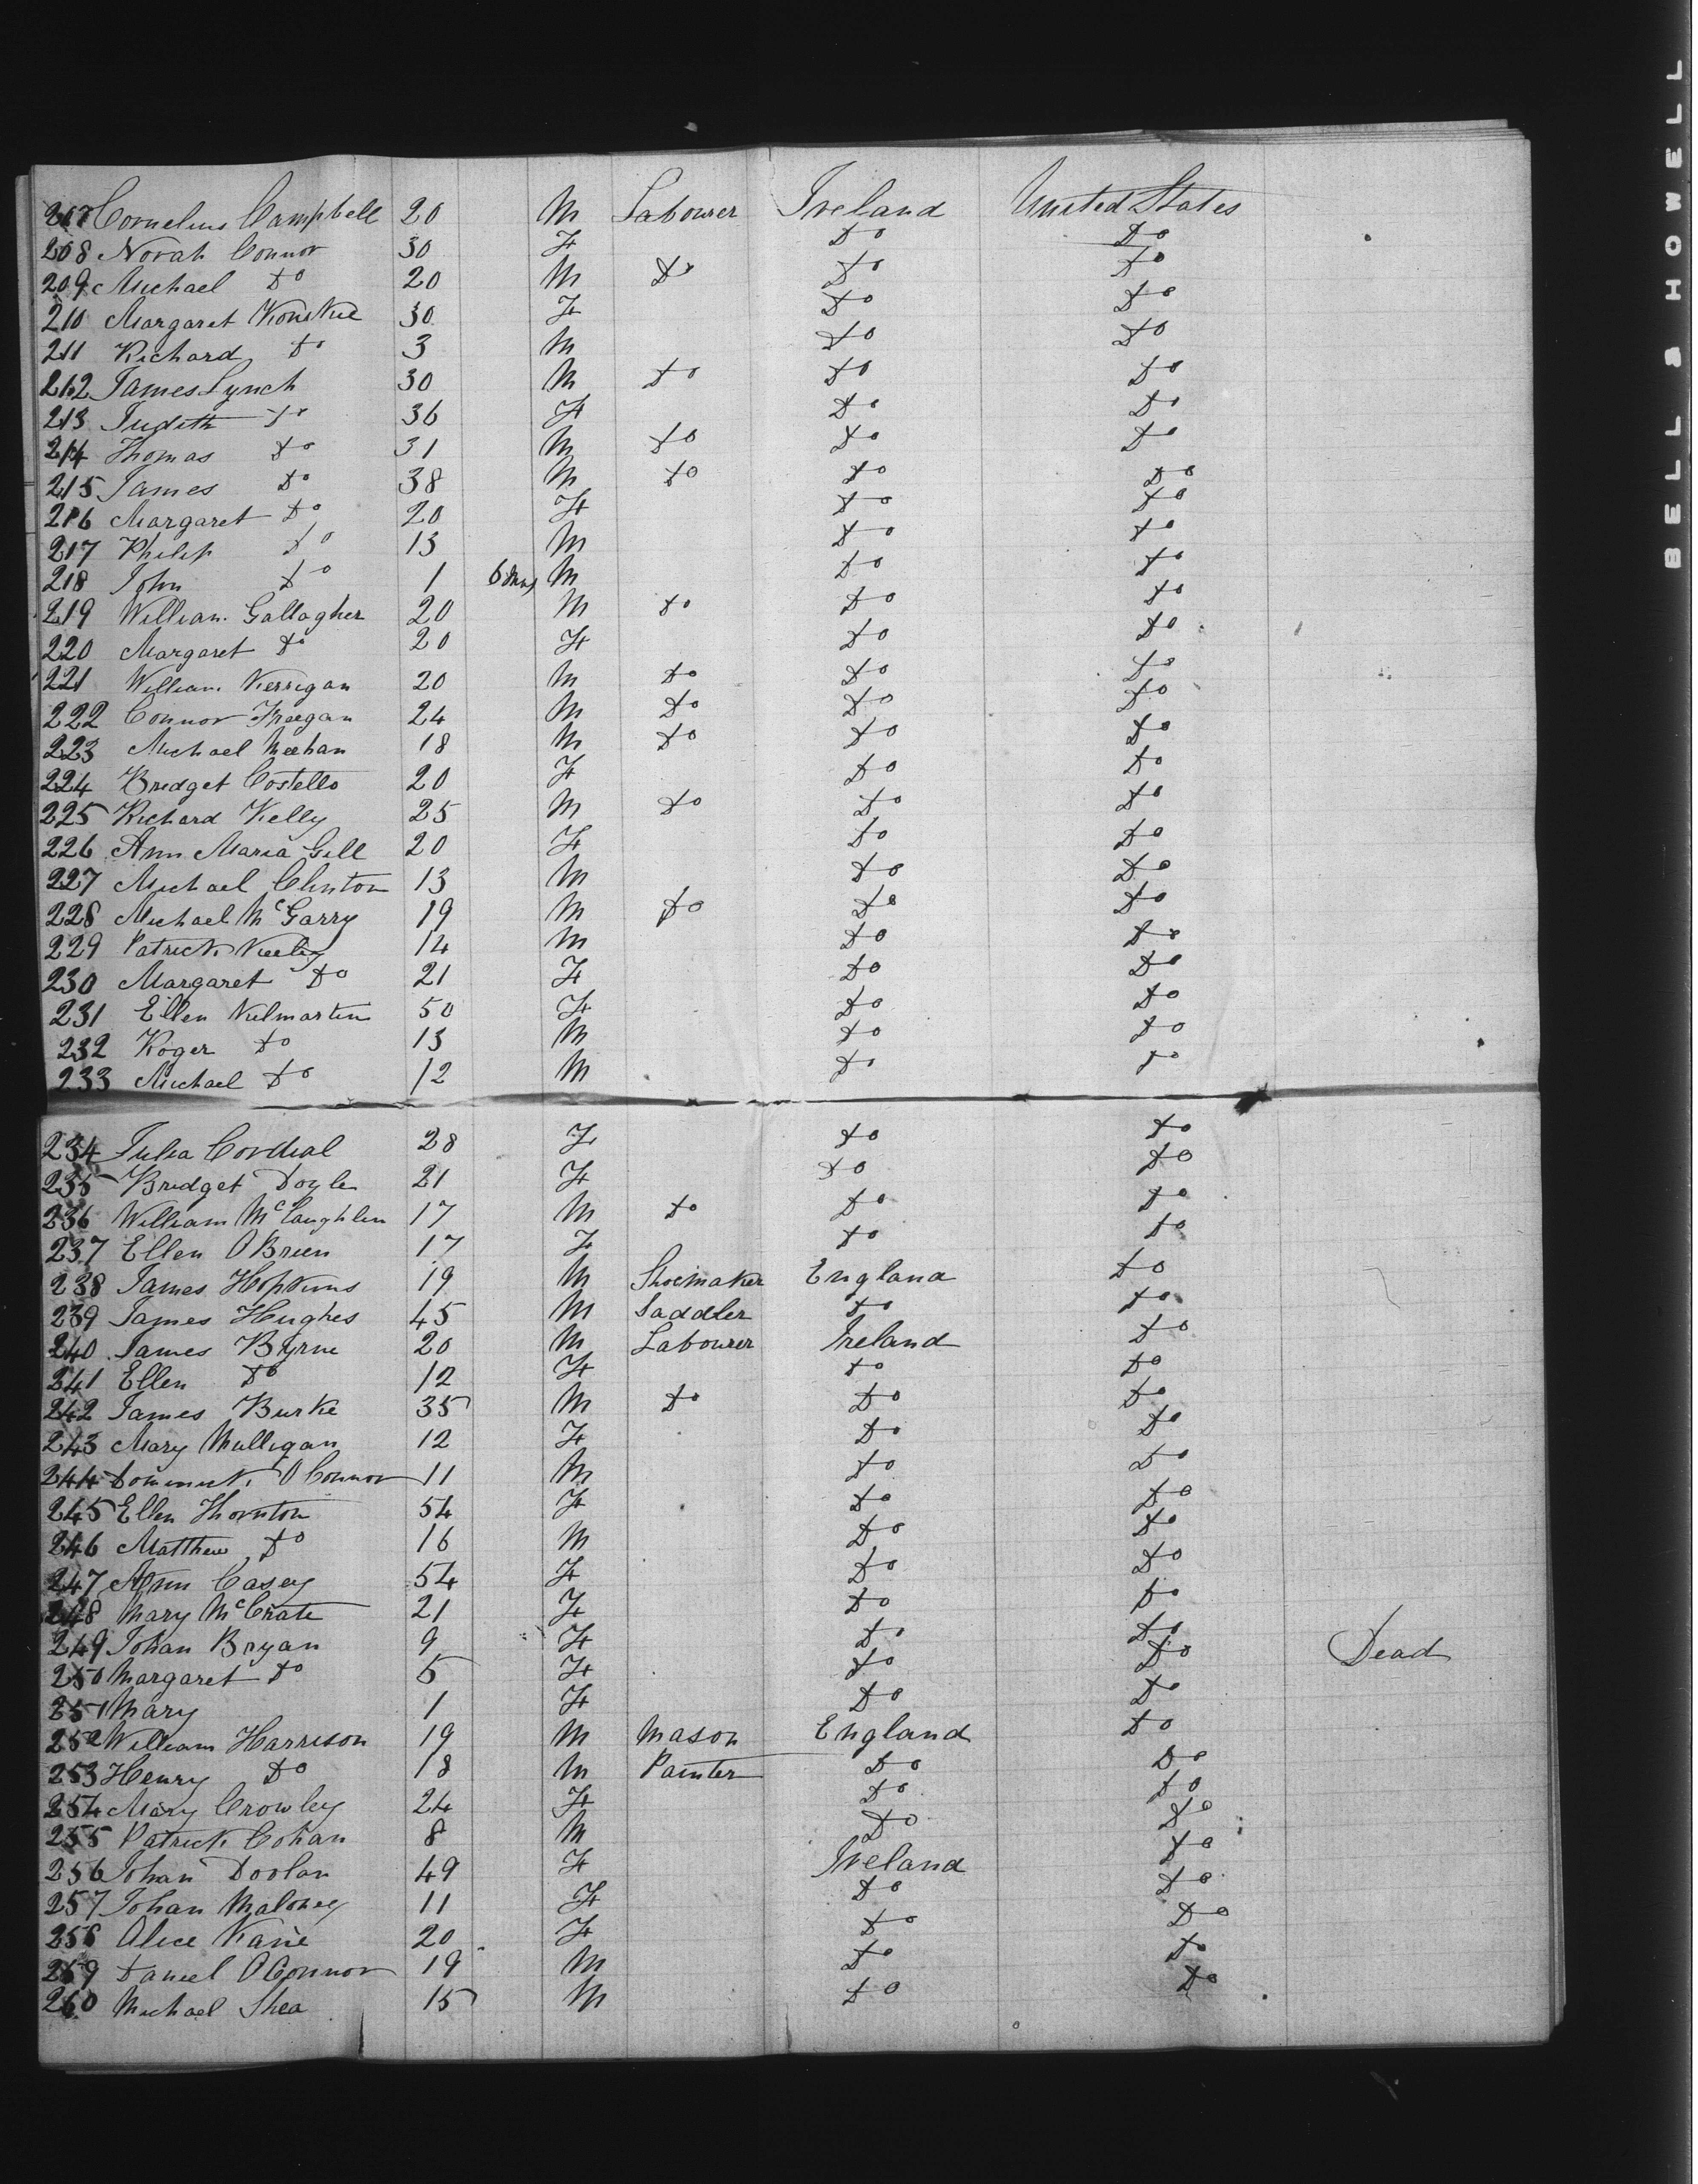 207 Cornelius Campbell 20 M Labourer Ireland United States
208 Norah Connor 30 F Do Do
209 Michael Do 20 M Do Do Do
210 Margaret 30 F Do Do
211 Richard Do 3 M Do Do
212 James Lynch 30 M Do Do Do
213 Judith Do 36 F Do Do
214 Thomas Do 31 M Do Do Do
215 James Do 38 M Do Do Do
216 Margaret Do 20 F Do Do
217 Philip Do 13 M Do Do
218 John Do 1 6 Mns M Do Do
219 William Gallagher 20 M Do Do Do
220 Margaret Do 20 F Do Do
221 William Kerrigan 20 M Do Do Do
222 Connor 24 M Do Do Do
223 Michael Meehan 18 M Do Do Do
224 Bridget Costello 20 F Do Do
225 Richard Kelly 25 M Do Do Do
226 Ann Maria Gill 20 F Do Do
227 Michael Clinton 13 M Do Do
228 Michael McGarry 19 M Do Do Do
229 Patrick Keeley 14 M Do Do
230 Margaret Do 21 F Do Do
231 Ellen Kilmartin 50 F Do Do
232 Roger Do 13 M Do Do
233 Michael Do 12 M Do Do
234 Julia Cordial 28 F Do Do
235 Bridget Doyle 21 F Do Do
236 William McLaughlin 17 M Do Do Do
237 Ellen O Brien 17 F Do Do
238 James Hopkins 19 M Shoemaker England Do
239 James Hughes 45 M Saddler Do Do
240 James Byrne 20 M Labourer Ireland Do
241 Ellen Do 12 F Do Do
242 James Burke 35 M Do Do Do
243 Mary Mulligan 12 F Do Do
244 Dominick O Connor 11 M Do Do
245 Ellen Thornton 54 F Do Do
246 Matthew Do 16 M Do Do
247 Ann Casey 54 F Do Do
248 Mary McCrate 21 F Do Do
249 Johan Bryan 9 F Do Do
250 Margaret Do 5 F Do Do Dead
251 Mary 1 F Do Do
252 William Harrison 19 M Mason England Do
253 Henry Do 18 M Painter Do Do
254 Mary Crowley 24 F Do Do
255 Patrick Cohan 8 M Do Do
256 Johan Doolan 49 F Ireland Do
257 Johan Maloney 11 F Do Do
258 Alice Kane 20 F Do Do
259 Daniel O Connor 19 M Do Do
260 Michael Shea 15 M Do Do
BELL & HOWELL